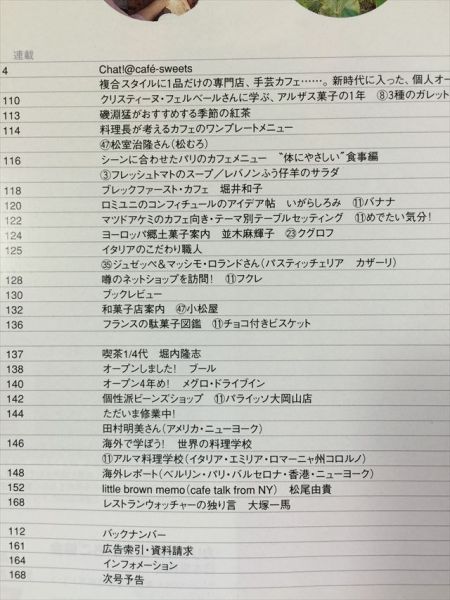 連載
4 Chat!@café-sweets
複合スタイルに1品だけの専門店、手芸カフェ……。新時代に入った、個人オー
110 クリスティーヌ・フェルベールさんに学ぶ、アルザス菓子の1年 ⑧3種のガレット
113 磯淵猛がおすすめする季節の紅茶
114 料理長が考えるカフェのワンプレートメニュー
㊼松室治隆さん（松むろ）
116 シーンに合わせたパリのカフェメニュー “体にやさしい”食事編
③フレッシュトマトのスープ／レバノンふう仔羊のサラダ
118 ブレックファースト・カフェ 堀井和子
120 ロミユニのコンフィチュールのアイデア帖 いがらしろみ ⑪バナナ
122 マツドアケミのカフェ向き・テーマ別テーブルセッティング ⑪めでたい気分！
124 ヨーロッパ郷土菓子案内 並木麻輝子 ㉓クグロフ
125 イタリアのこだわり職人
㉟ジュゼッペ＆マッシモ・ロランドさん（パスティッチェリア カザーリ）
128 噂のネットショップを訪問！ ⑪フクレ
130 ブックレビュー
132 和菓子店案内 ㊼小松屋
136 フランスの駄菓子図鑑 ⑪チョコ付きビスケット
137 喫茶1/4代 堀内隆志
138 オープンしました！ プール
140 オープン4年め！ メグロ・ドライブイン
142 個性派ビーンズショップ ⑪パライッソ大岡山店
144 ただいま修業中！
田村明美さん（アメリカ・ニューヨーク）
146 海外で学ぼう！ 世界の料理学校
⑪アルマ料理学校（イタリア・エミリア・ロマーニャ州コロルノ）
148 海外レポート（ベルリン・パリ・バルセロナ・香港・ニューヨーク）
152 little brown memo（cafe talk from NY） 松尾由貴
168 レストランウォッチャーの独り言 大塚一馬
112 バックナンバー
161 広告索引・資料請求
164 インフォメーション
168 次号予告